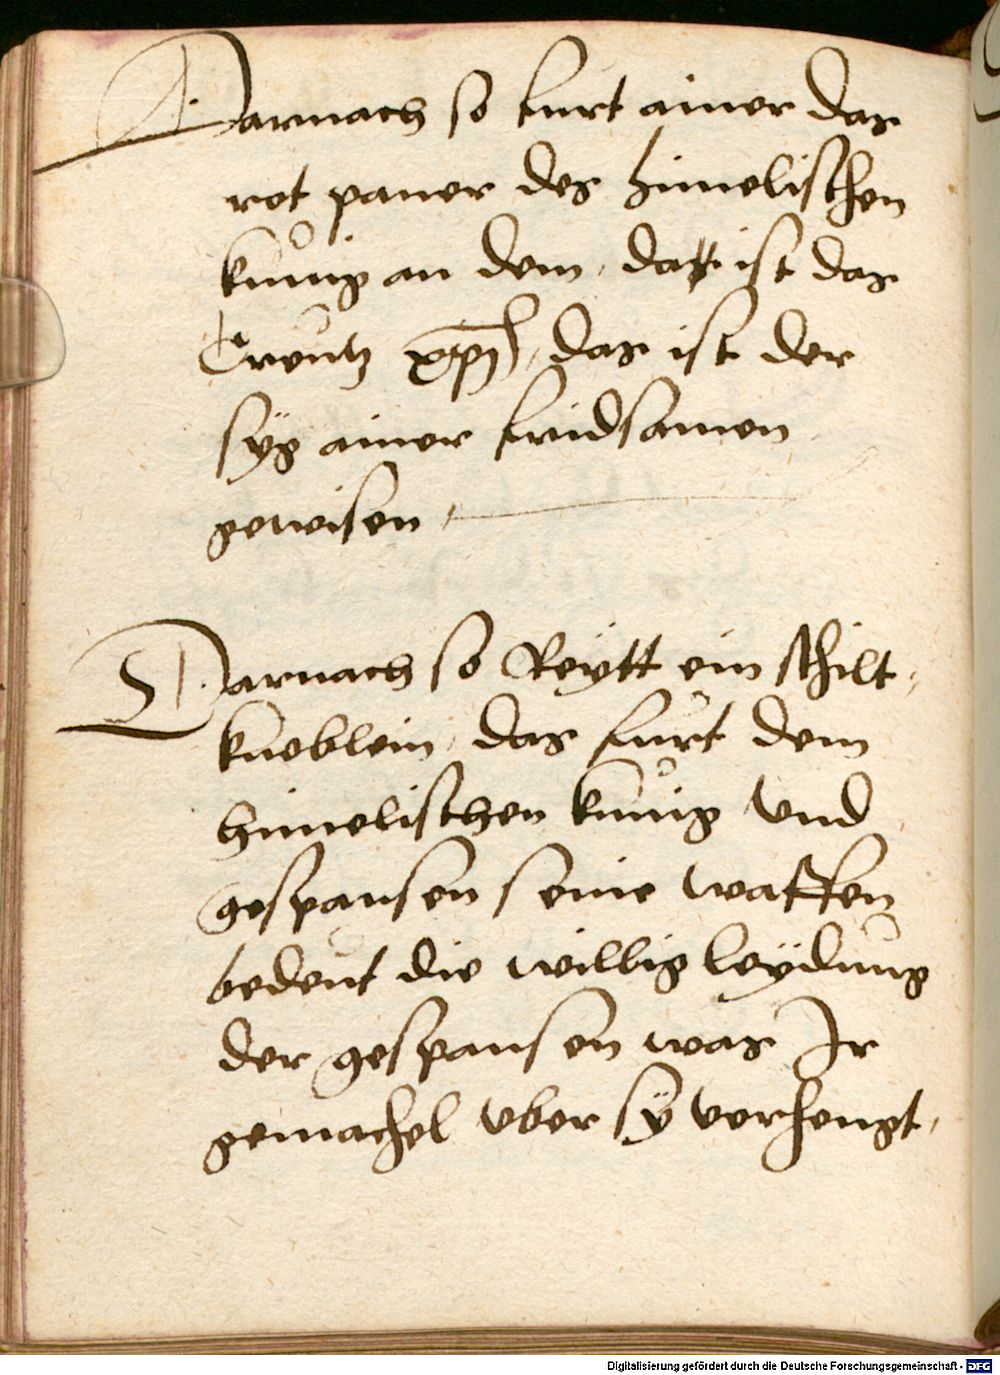 Darnach so furt ainer das
rot paner des himelischen
kůnig an dem, das ist das
Creutz xpı̄, das ist der
syg ainer fridsamen
gewisen,
Darnach so Reytt ein schilt-
kneblein, das furt dem
himelischen kůnig vnd
gespansen seine waffen
bedeut die willig leÿdung
der gespansen was Ir
gemachel vber sÿ verhengt,
Digitalisierung gefördert durch die Deutsche Forschungsgemeinschaft - DFG